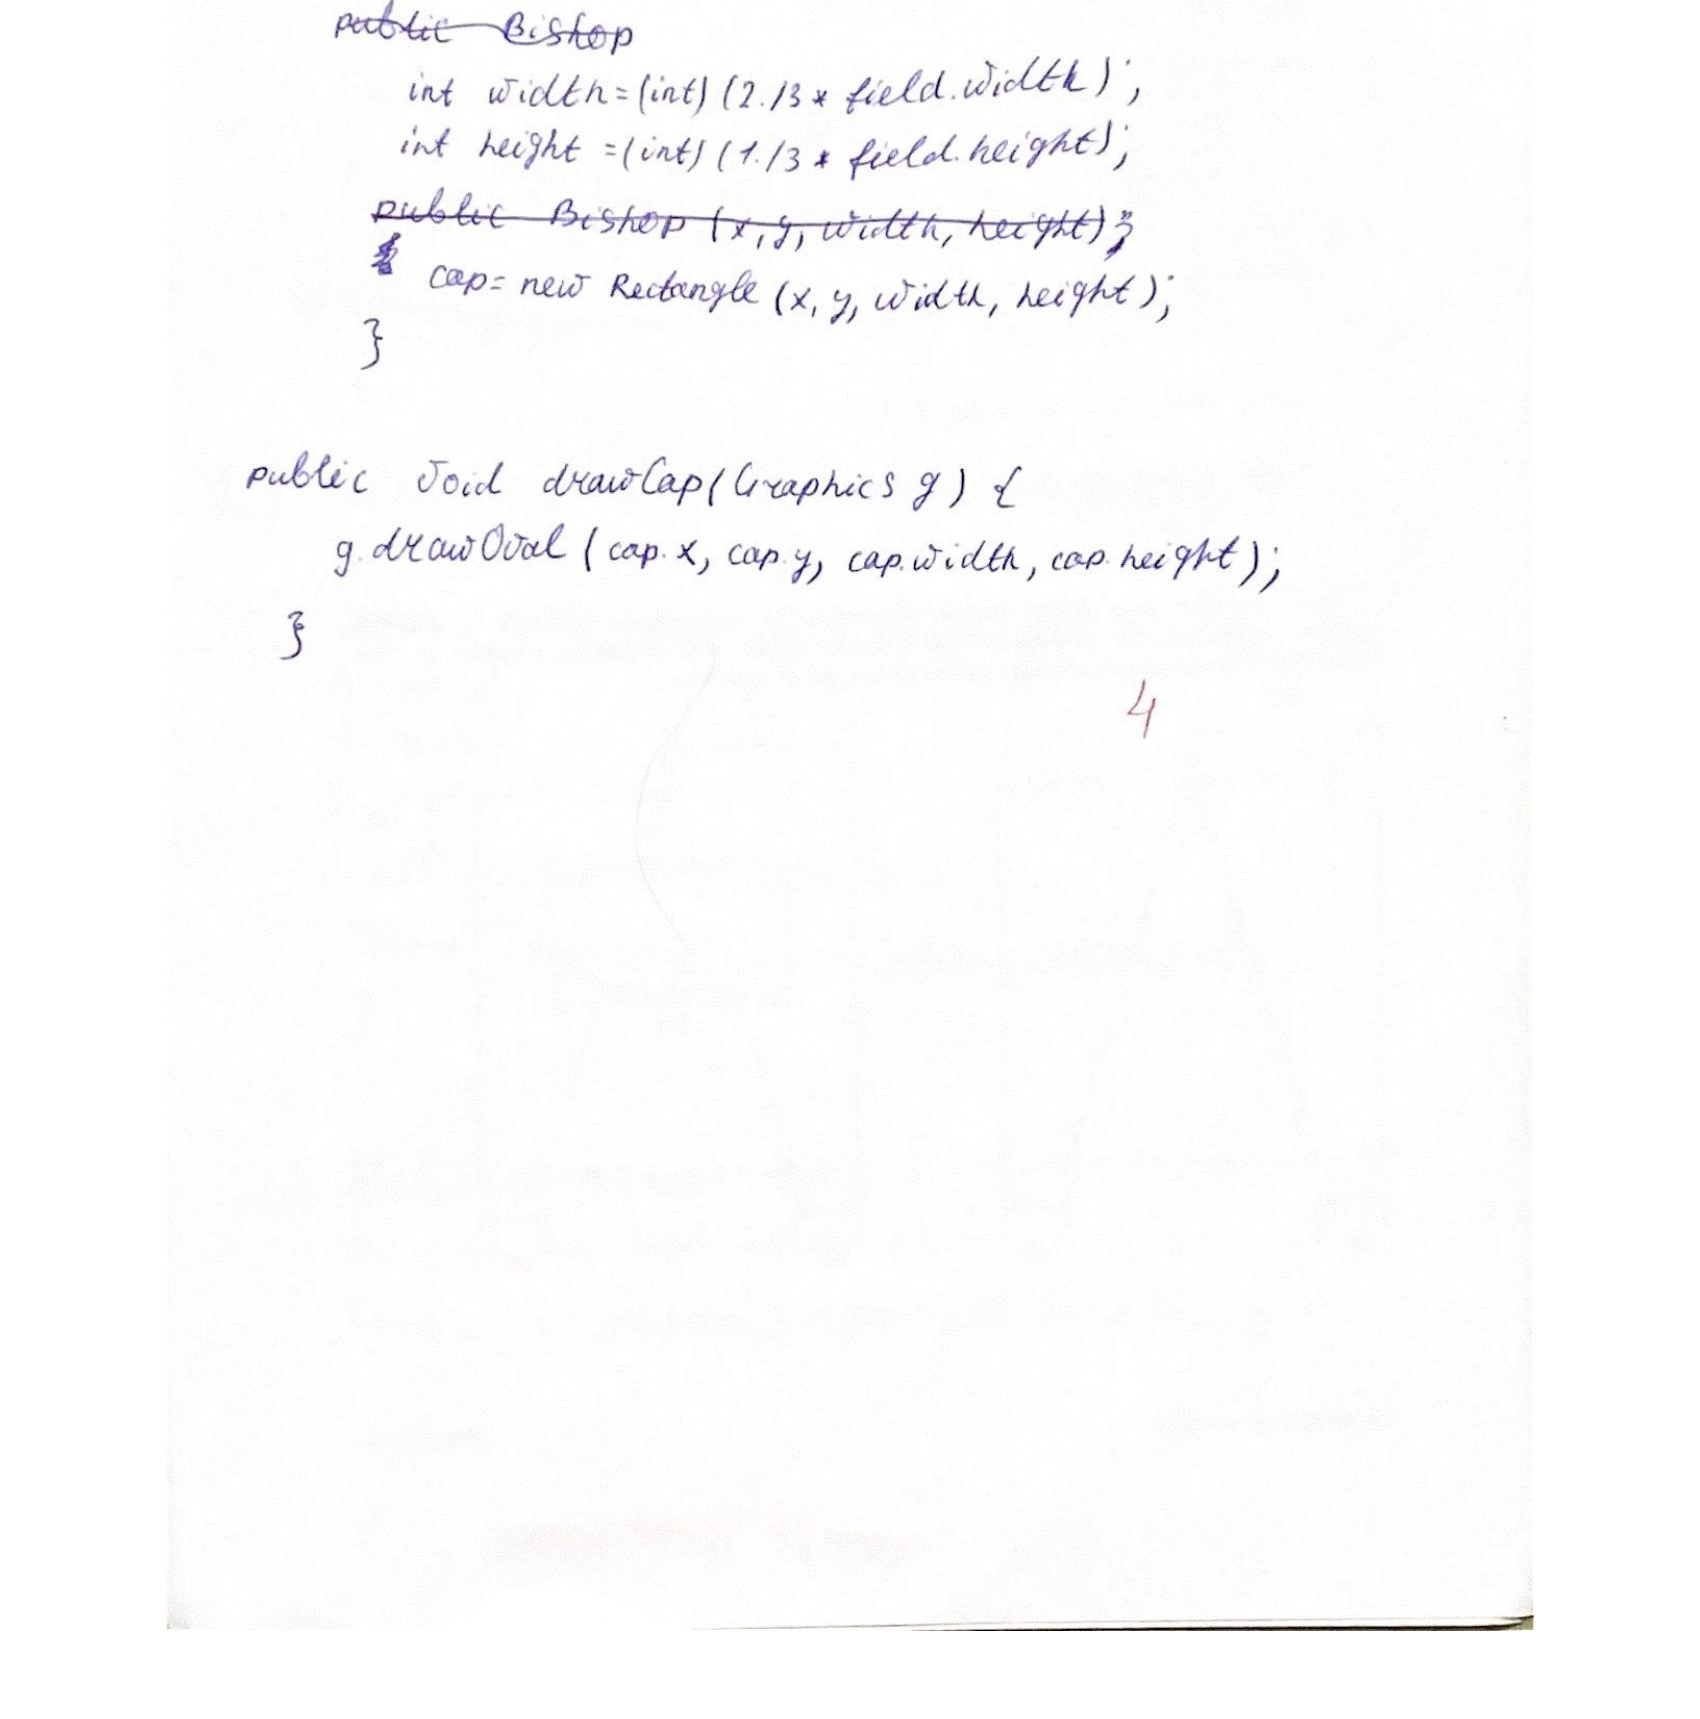 public Bishop
int width=(int) (2./3 * field.width);
int height =(int) (1./3 * field.height);
public Bishop (x, y, width, height);
cap= new Rectangle (x, y, width, height);
}
public void drawCap(Graphics g) {
g.drawOval (cap.x, cap.y, cap.width, cap.height);
}
4